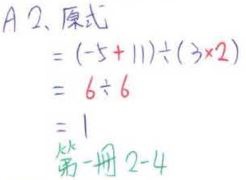 A 2、原式
= (-5+11)÷(3×2)
= 6÷6
= 1
第一冊 2-4